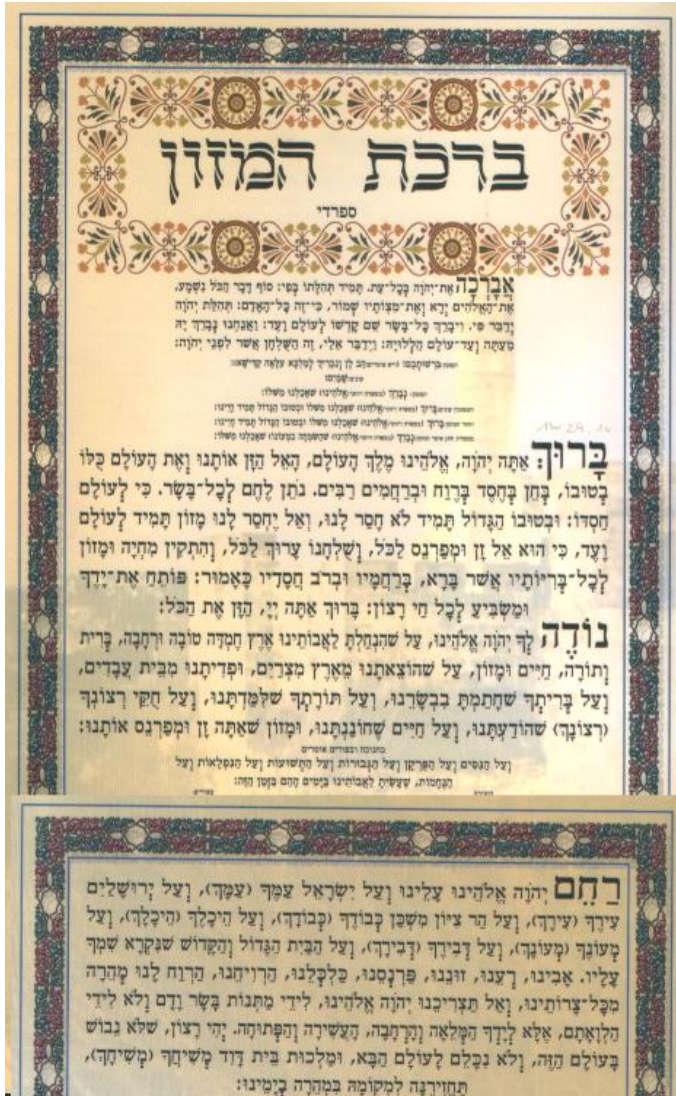 ברכת המזון
ספרדי
אֲבָרְכָה אֶת־יְהֹוָה בְּכָל־עֵת. תָּמִיד תְּהִלָּתוֹ בְּפִי: סוֹף דָּבָר הַכֹּל נִשְׁמָע,
אֶת־הָאֱלֹהִים יְרָא וְאֶת־מִצְוֹתָיו שְׁמוֹר, כִּי־זֶה כָּל־הָאָדָם: תְּהִלַּת יְהֹוָה
יְדַבֶּר פִּי. וִיבָרֵךְ כָּל־בָּשָׂר שֵׁם קָדְשׁוֹ לְעוֹלָם וָעֶד: וַאֲנַחְנוּ נְבָרֵךְ יָהּ
מֵעַתָּה וְעַד־עוֹלָם הַלְלוּיָהּ: וַיְדַבֵּר אֵלַי, זֶה הַשֻּׁלְחָן אֲשֶׁר לִפְנֵי יְהֹוָה:
הַב לָן וְנַבְרִיךְ לְמַלְכָּא עִלָּאָה קַדִּישָׁא:
שָׁמַיִם:
נְבָרֵךְ אֱלֹהֵינוּ שֶׁאָכַלְנוּ מִשֶּׁלּוֹ:
בָּרוּךְ אֱלֹהֵינוּ שֶׁאָכַלְנוּ מִשֶּׁלּוֹ וּבְטוּבוֹ הַגָּדוֹל תָּמִיד חָיִינוּ:
בָּרוּךְ אֱלֹהֵינוּ שֶׁאָכַלְנוּ מִשֶּׁלּוֹ וּבְטוּבוֹ הַגָּדוֹל תָּמִיד חָיִינוּ:
נְבָרֵךְ אֱלֹהֵינוּ שֶׁהַשִּׂמְחָה בִמְעוֹנוֹ שֶׁאָכַלְנוּ מִשֶּׁלּוֹ:
בָּרוּךְ: אַתָּה יְהֹוָה, אֱלֹהֵינוּ מֶלֶךְ הָעוֹלָם, הָאֵל הַזָּן אוֹתָנוּ וְאֶת הָעוֹלָם כֻּלּוֹ
בְּטוּבוֹ, בְּחֵן בְּחֶסֶד בְּרֶוַח וּבְרַחֲמִים רַבִּים. נֹתֵן לֶחֶם לְכָל־בָּשָׂר. כִּי לְעוֹלָם
חַסְדּוֹ: וּבְטוּבוֹ הַגָּדוֹל תָּמִיד לֹא חָסַר לָנוּ, וְאַל יֶחְסַר לָנוּ מָזוֹן תָּמִיד לְעוֹלָם
וָעֶד, כִּי הוּא אֵל זָן וּמְפַרְנֵס לַכֹּל, וְשֻׁלְחָנוֹ עָרוּךְ לַכֹּל, וְהִתְקִין מִחְיָה וּמָזוֹן
לְכָל־בְּרִיּוֹתָיו אֲשֶׁר בָּרָא, בְּרַחֲמָיו וּבְרֹב חֲסָדָיו כָּאָמוּר: פּוֹתֵחַ אֶת־יָדֶךָ
וּמַשְׂבִּיעַ לְכָל חַי רָצוֹן: בָּרוּךְ אַתָּה יְיָ, הַזָּן אֶת הַכֹּל:
נוֹדֶה לְךָ יְהֹוָה אֱלֹהֵינוּ, עַל שֶׁהִנְחַלְתָּ לַאֲבוֹתֵינוּ אֶרֶץ חֶמְדָּה טוֹבָה וּרְחָבָה, בְּרִית
וְתוֹרָה, חַיִּים וּמָזוֹן, עַל שֶׁהוֹצֵאתָנוּ מֵאֶרֶץ מִצְרַיִם, וּפְדִיתָנוּ מִבֵּית עֲבָדִים,
וְעַל בְּרִיתְךָ שֶׁחָתַמְתָּ בִּבְשָׂרֵנוּ, וְעַל תּוֹרָתְךָ שֶׁלִּמַּדְתָּנוּ, וְעַל חֻקֵּי רְצוֹנָךְ
(רְצוֹנֶךָ) שֶׁהוֹדַעְתָּנוּ, וְעַל חַיִּים שֶׁחוֹנַנְתָּנוּ, וּמָזוֹן שֶׁאַתָּה זָן וּמְפַרְנֵס אוֹתָנוּ:
בחנוכה ובפורים אומרים
וְעַל הַנִּסִּים וְעַל הַפֻּרְקָן וְעַל הַגְּבוּרוֹת וְעַל הַתְּשׁוּעוֹת וְעַל הַנִּפְלָאוֹת וְעַל
הַנֶּחָמוֹת, שֶׁעָשִׂיתָ לַאֲבוֹתֵינוּ בַּיָּמִים הָהֵם בַּזְּמַן הַזֶּה:
רַחֵם יְהֹוָה אֱלֹהֵינוּ עָלֵינוּ וְעַל יִשְׂרָאֵל עַמָּךְ (עַמֶּךָ), וְעַל יְרוּשָׁלַיִם
עִירָךְ (עִירֶךָ), וְעַל הַר צִיּוֹן מִשְׁכַּן כְּבוֹדָךְ (כְּבוֹדֶךָ), וְעַל הֵיכָלָךְ (הֵיכָלֶךָ), וְעַל
מְעוֹנָךְ (מְעוֹנֶךָ), וְעַל דְּבִירָךְ (דְּבִירֶךָ), וְעַל הַבַּיִת הַגָּדוֹל וְהַקָּדוֹשׁ שֶׁנִּקְרָא שִׁמְךָ
עָלָיו. אָבִינוּ, רְעֵנוּ, זוּנֵנוּ, פַּרְנְסֵנוּ, כַּלְכְּלֵנוּ, הַרְוִיחֵנוּ, הַרְוַח לָנוּ מְהֵרָה
מִכָּל־צָרוֹתֵינוּ, וְאַל תַּצְרִיכֵנוּ יְהֹוָה אֱלֹהֵינוּ, לִידֵי מַתְּנוֹת בָּשָׂר וָדָם וְלֹא לִידֵי
הַלְוָאָתָם, אֶלָּא לְיָדְךָ הַמְּלֵאָה וְהָרְחָבָה, הָעֲשִׁירָה וְהַפְּתוּחָה. יְהִי רָצוֹן, שֶׁלֹּא נֵבוֹשׁ
בָּעוֹלָם הַזֶּה, וְלֹא נִכָּלֵם לְעוֹלָם הַבָּא, וּמַלְכוּת בֵּית דָּוִד מְשִׁיחָךְ (מְשִׁיחֶךָ),
תַּחֲזִירֶנָּה לִמְקוֹמָהּ בִּמְהֵרָה בְיָמֵינוּ: